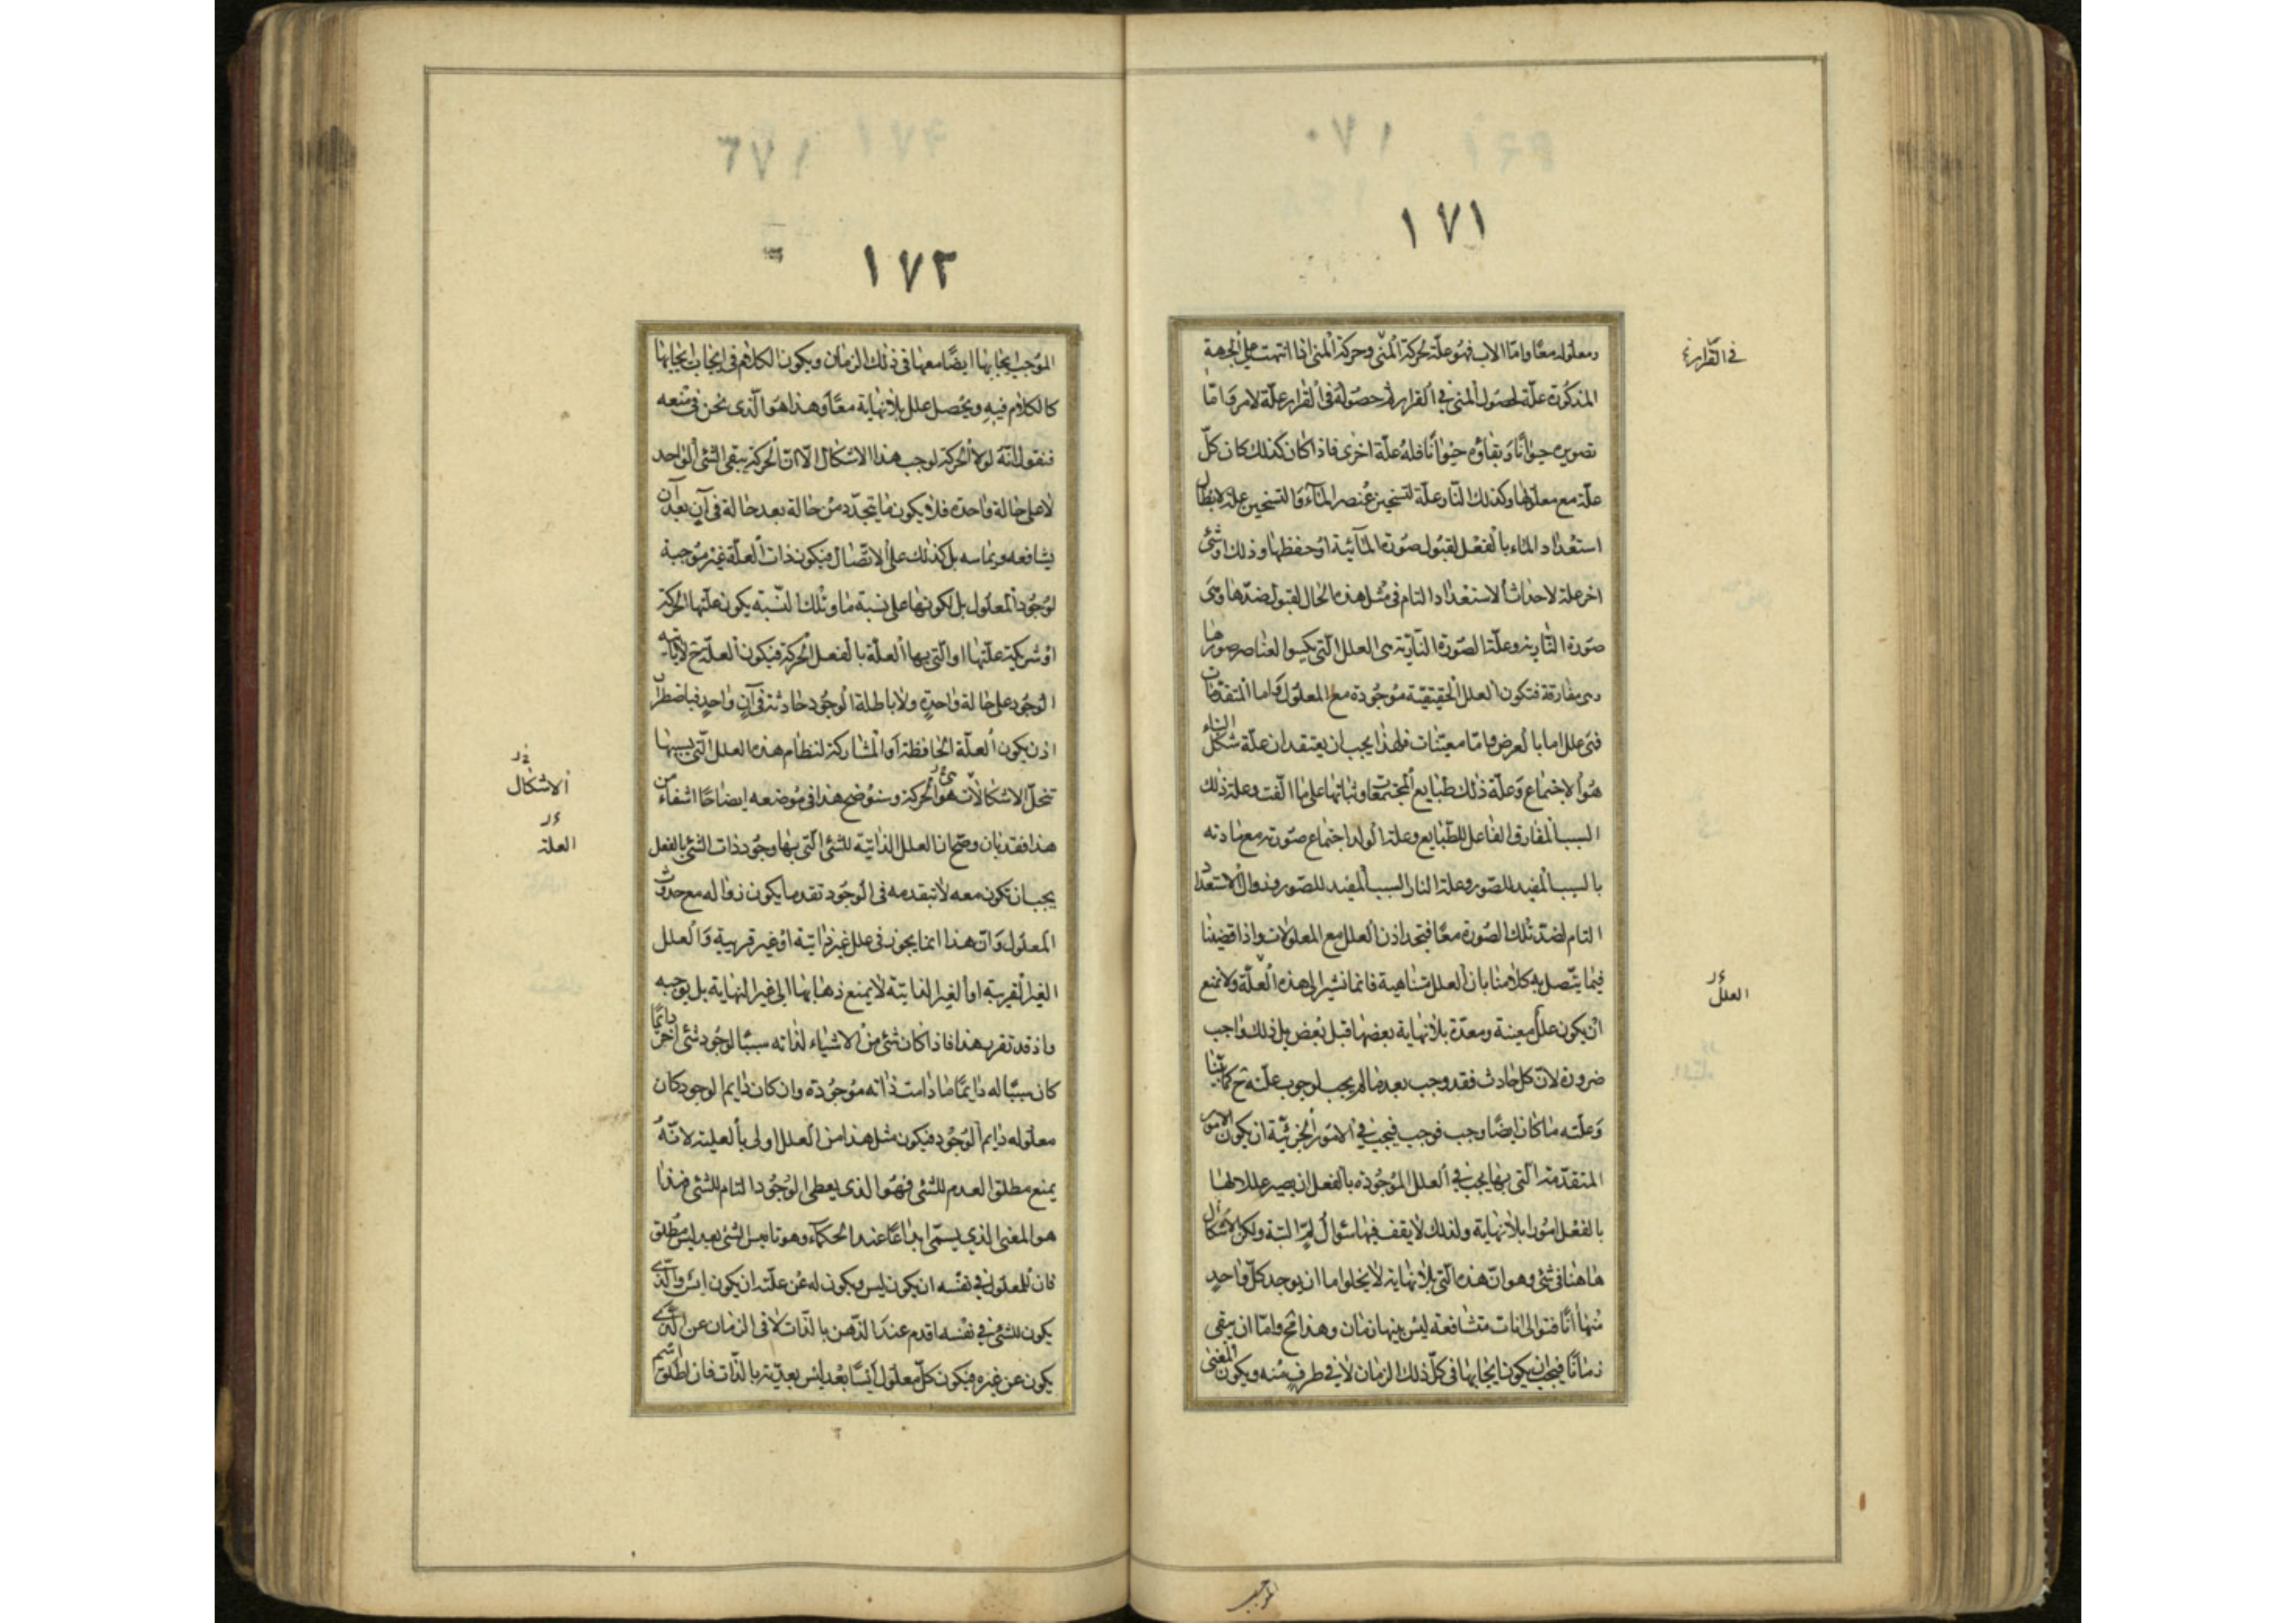 ١٧١
ومعلوله معًا وامّا الاب فهو علّة لحركة المنّى وحركة المنى اذا انتهت على الجهة
المذكورة علّة لحصول المنى في القرار ثمّ حصوله فى القرار علّة لامر وَامّا
تصويره حيوانًا وَبقاؤه حيوانًا فله علّة اخرى فاذا كان كذلك كان كلّ
علّة مع معلولها وكذلك النّار علّة لتسخين عنصر المآء وَالتسخين علّة لابطال
استعداد الماء بالفعل لقبول صورة المآئية او حفظها وذلك او شئ
اخر علة لاحداث الاستعداد التام فى مثل هذه الحال لقبول ضدّها وهى
صورة النّارية وعلّة الصّورة النّاريّة هى العلل التى يكسوا العناصر صورها
وهى مفارقة فتكون العلل الحقيقيّة موجودة مع المعلول وَاما المتقدّمات
فهى علل اما بالعرض وامّا معينات فلهذا يجب ان يعتقد ان علّة شكل البناء
هو الاجتماع وَعلّة ذلك طبايع المجتمعات وثباتها على ما الّفت وعلة ذلك
السبب المفارق الفاعل للطّبايع وعلة الولد اجتماع صورته مع مادته
بالسبب المفيد للصّور وعلة النار السبب المفيد للصّور وزوال الاستعداد
التام لضدّ تلك الصّورة معًا فتجد اذن العلل مع المعلولات واذا قضينا
فيما يتّصل به كلامنا بان العلل متناهية فانما نشير الى هذه العلّة ولا نمنع
ان يكون علل معينة ومعدّة بلا نهاية بعضها قبل بعض بل ذلك واجب
ضرورة لانّ كل حادث فقد وجب بعد ما لم يجب لوجوب علّته ح كما بيّنا
وَعلّته ما كان ايضًا وجب فوجب فيجب في الامور الجزئيّة ان يكون الامور
المتقدّمة الّتى بها يجب في العلل الموجودة بالفعل ان يصير عللا لها
بالفعل امورا بلا نهاية ولذلك لا يقف فيها سؤال لم البتة ولكن الاشكال
هاهنا فى شئ وهو انّ هذه الّتى بلا نهاية لا يخلوا اما ان يوجد كلّ واحد
منها آنًا فتوالى انات متشافعة ليس بينها زمان وهذا مح وامّا ان يبقى
زمانًا فيجب ان يكون ايجابها فى كلّ ذلك الزمان لا في طرف منه ويكون المعنى
في القرار
العلل
الموجب
١٧٢
الموجب لايجابها ايضًا معها فى ذلك الزمان ويكون الكلام فى ايجاب ايجابها
كالكلام فيه ويحصل علل بلا نهاية معًا وَهذا هو الّذى نحن فى منعه
فنقول انّه لولا الحركة لوجب هذا الاشكال الّا انّ الحركة يبقى الشئ الواحد
لا على حالة واحدة فلا يكون ما يتجدّد من حالة بعد حالة فى آن بعد آن
يشافعه ويماسه بل كذلك على الاتّصال فيكون ذات العلّة غير موجبة
لوجود المعلول بل لكونها على نسبة ما وتلك النّسبة يكون علّتها الحركة
او شريكة علّتها او الّتى بها العلّة بالفعل الحركة فيكون العلّة ح لا ثابته
الوجود على حالة واحدةٍ ولا باطلة الوجود حادثة فى آنٍ واحدٍ فباضطرار
اذن يكون العلّة الحافظة او المشاركة لنظام هذه العلل الّتى بسببها
تنحلّ الاشكالات هو الحركة وسنوضح هذا فى موضعه ايضاحًا اشفاء من
هذا فقد بان وضح ان العلل الذاتيّة للشئ الّتى بها وجود ذات الشئ بالفعل
يجب ان تكون معه لا تتقدمه فى الوجود تقدما يكون زواله مع حدوث
المعلول وَانّ هذا انما يجوز فى علل غير ذاتيّة او غير قريبة وَالعلل
الغير القريبة او الغير الذاتيّة لا يمنع ذهابها الى غير النهاية بل يوجبه
واذ قد تقرر هذا فاذا كان شئ من الاشياء لذاته سببًا لوجود شئ آخر دائمًا
كان سببًا له دايمًا ما دامت ذاته موجودة وان كان دايم الوجود كان
معلوله دايم الوجود فيكون مثل هذا من العلل اولى بالعلية لانّهُ
يمنع مطلق العدم للشئ فهو الذى يعطى الوجود التام للشئ فهذا
هو المعنى الذي يسمّى ابداعًا عند الحكمآء وهو تاييس الشئ بعد ليس مطلق
فان للمعلول فى نفسه ان يكون ليس ويكون له عن علّته ان يكون ايس والّذى
يكون للشئ في نفسه اقدم عند الذّهن بالذّات لا فى الزمان عن الّذى
يكون عن غيره فيكون كلّ معلول ايسًا بعد ليس بعديّة بالذّات فان اطلق اسم
الاشكال
العلة